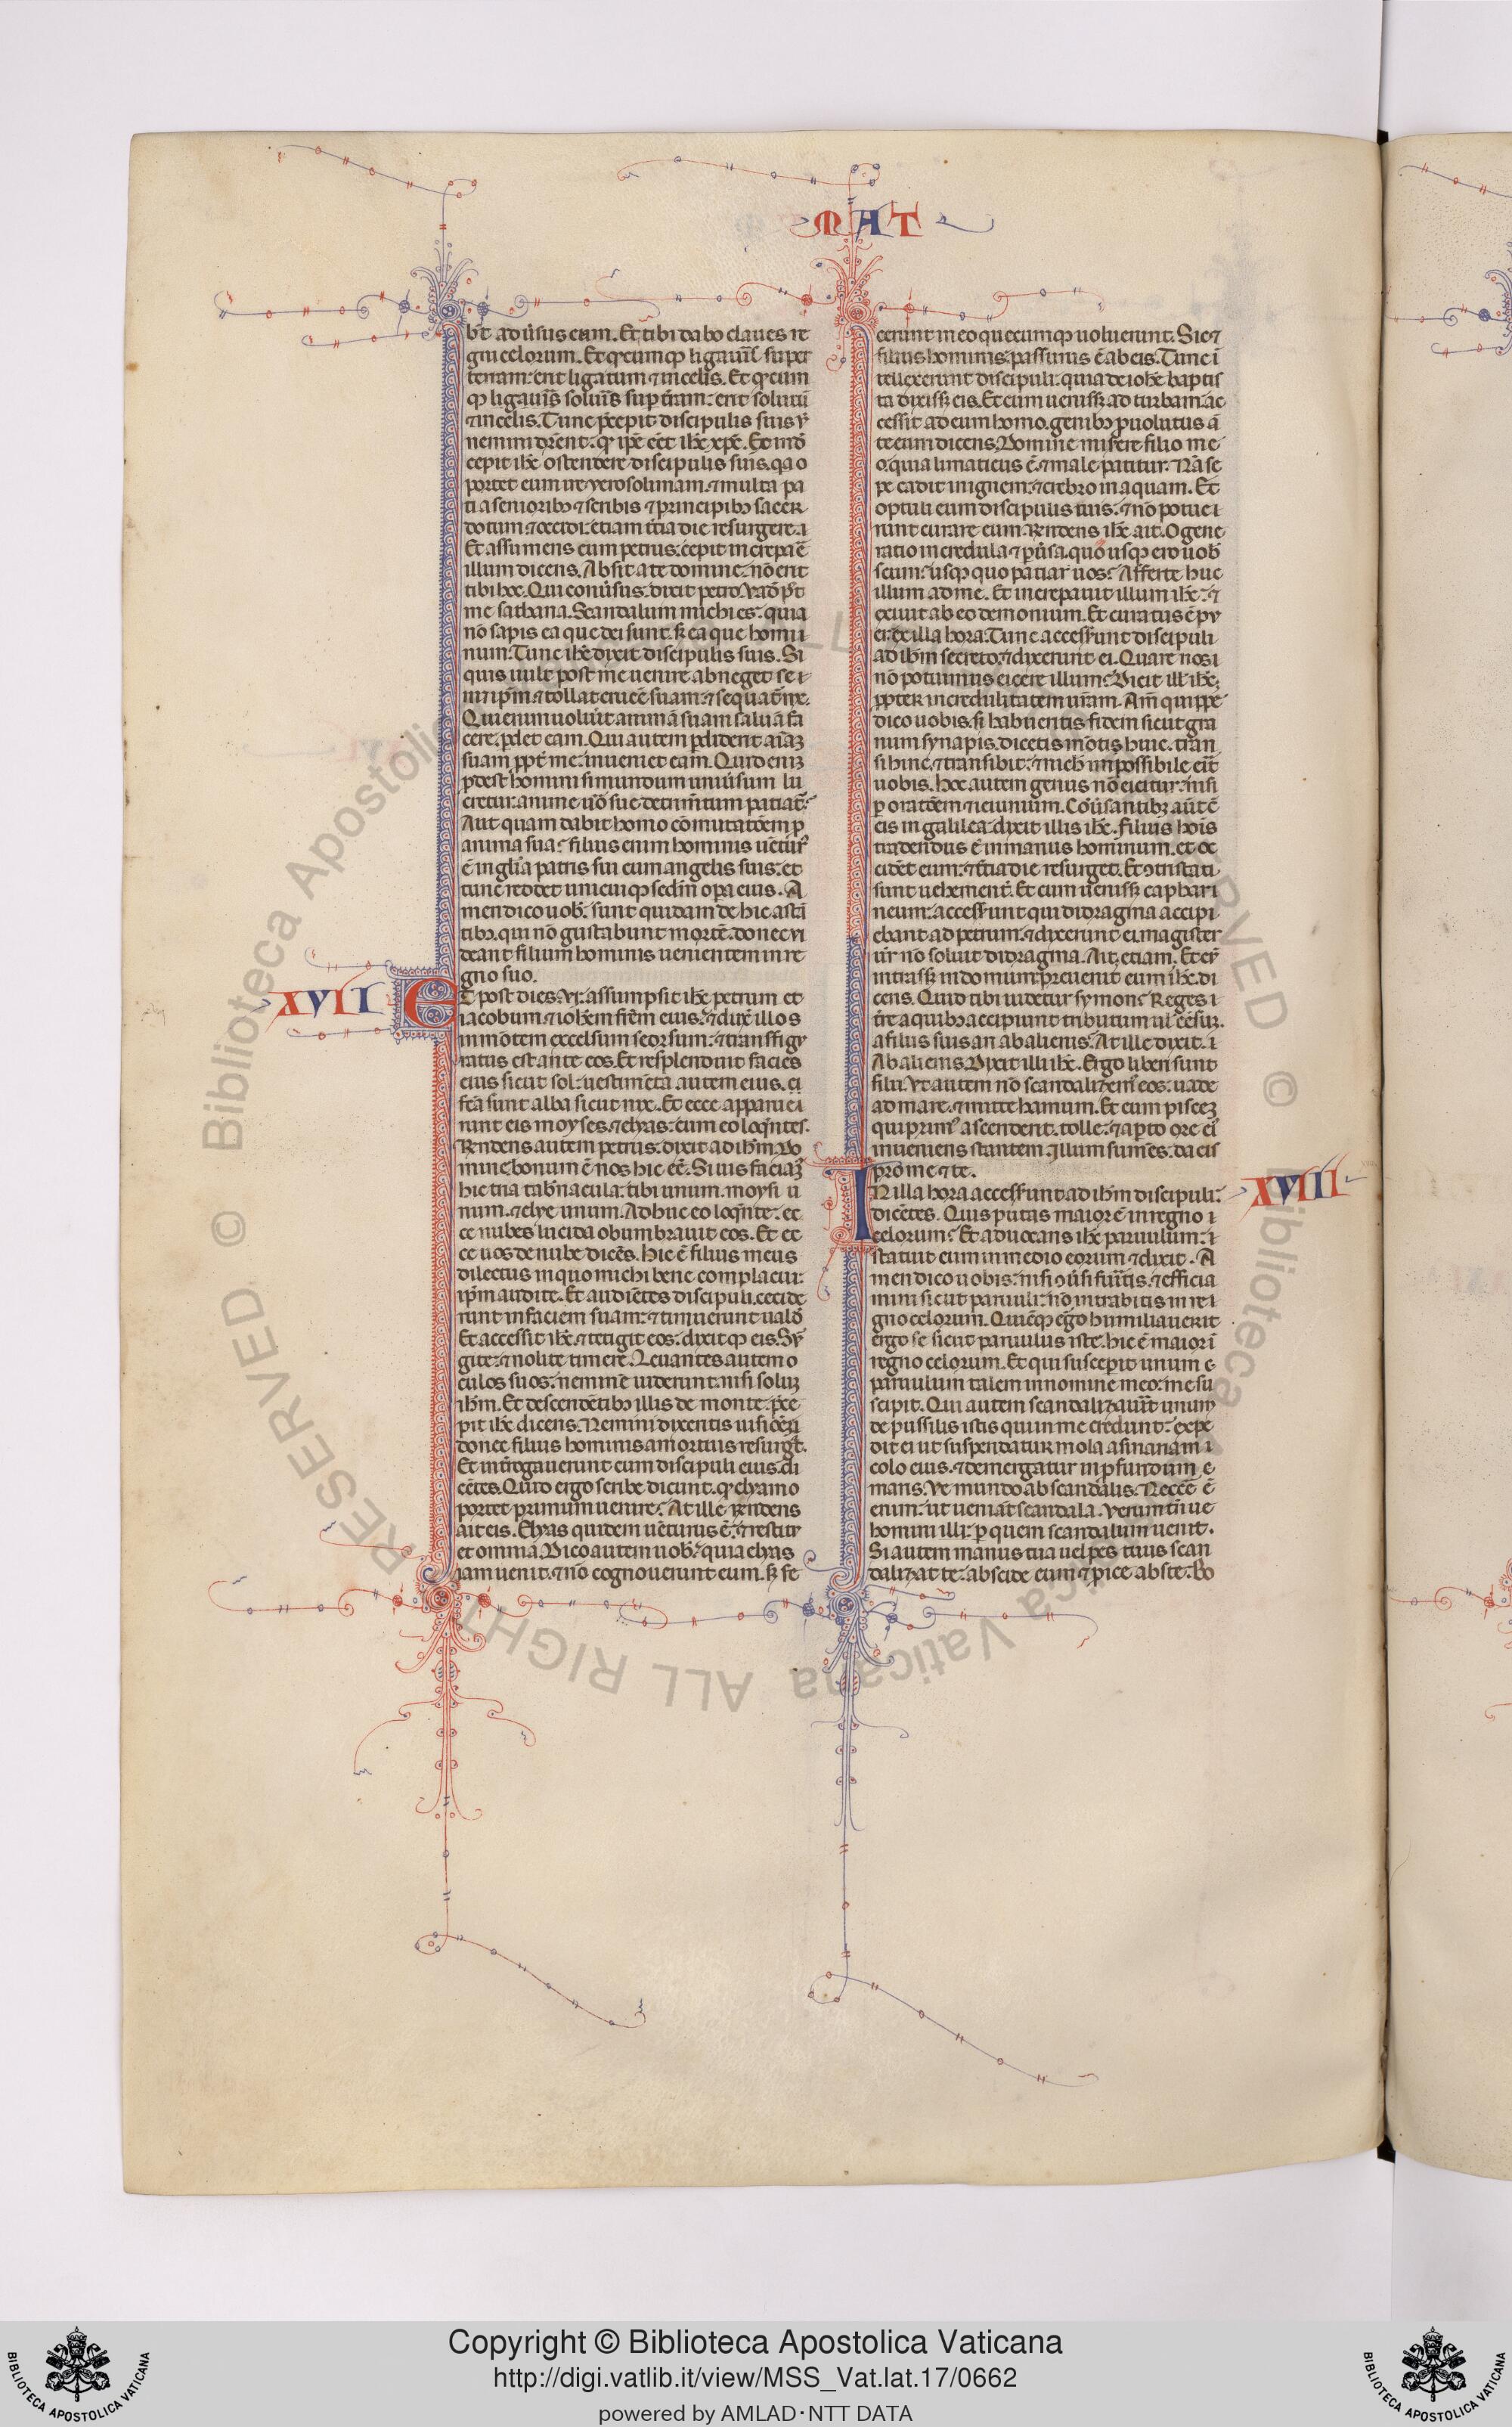 MAT
bt̃ aduisus eam. Et tibi dabo claues re
gni celorum. Et qcumq ligaũis super
terram: erit ligatum & in celis. Et qcum
q ligaũis soluis sup tram: erit solutũ
& in celis. Tunc p̃cepit discipulis suis ỹ
nemini dicent: q ip̃e eẽt ihc̃ xp̃c. Et inẽ
cepit ihc̃ ostendere discipulis suis. qa o
portet eum ire yerosolimam. & multa pa
ti a senioribꝫ & scribis & principibꝫ sacer
dotum: & occidi. etiam tc̃ia die resurgere.
Et assumens eum petrus: cepit increpaẽ
illum dicens. Absit a te domine: nõ erit
tibi hoc. Qui conũsus. dixit petro. Vade pt̃
me sathana. Scandalum michi es: quia
nõ sapis ea que dei sunt. sꝫ ea que homi
num. Tunc ihc̃ dixit discipulis suis. Si
quis uult post me uenire abneget se i
met ip̃m. & tollat crucẽ suam: & sequatur me.
Qui enim uoluit animã suam saluã fa
cere. pdet eam. Qui autem pdident aĩaꝫ
suam ppt̃ me: inueniet eam. Quid eniꝫ
pdest homini si mundum uniũsum lu
cretur: anime ũo sue detrim̃tum patiat̃.
Aut quam dabit homo cõmutatõem p
anima sua: filius enim hominis uẽtur
ẽ in glĩa patris sui cum angelis suis: et
tunc reddet unicuiq sedm̃ opa eius. A
men dico uob̃. sunt quidam de hic astã
tibꝫ. qui nõ gustabunt mortẽ. donec ui
deant filium hominis uenientem in re
gno suo.
XVII
ET post dies. vi. assumpsit ihc̃ petrum et
iacobum. & iohem̃ frem̃ eius: & duxẽ illos
in mõtem excelsum seorsum: & transfigu
ratus est ante eos. Et resplenduit facies
eius sicut sol: uestimẽta autem eius. ei
fcã sunt alba sicut nix. Et ecce apparue i
runt eis moyses. & elyas: cum eo loqñtes.
Rn̄dens autem petrus: dixit ad ihm̃. Do
mine. bonum ẽ nos hic eẽ. Si uis faciaꝫ
hic tria tabñacula: tibi unum. moysi u
num. & elye unum. Adhuc eo loqñte: ec
ce nubes lucida obumbrauit eos. Et ec
ce uox de nube dicẽs. Hic ẽ filius meus
dilectus in quo michi bene complacui:
ip̃m audite. Et audiẽtes discipuli. cecide
runt in faciem suam: & timuerunt ualdẽ
Et accessit ihc̃. & tetigit eos: dixit q eis. Sỹ
gite: & nolite timere. Leuantes autem o
culos suos: neminẽ uiderunt. nisi soluꝫ
ihm̃. Et descendẽtibꝫ illis de monte: pce
pit ihc̃ dicens. Nemini dixeritis uisiõem
donec filius hominis a mortuis resurgt̃.
Et int̃rogauerunt eum discipuli eius. di
cẽtes. Quid ergo scribe dicunt. q elyam o
portet primum uenire: At ille Rn̄dens
ait eis. Elyas quidem uẽturus ẽ: & restitu
et omnia. Dico autem uob̃: quia elyas
iam uenit. & nõ cognouerunt eum. sꝫ fe
cerunt in eo quecumq uoluerunt. Sic &
filius hominis: passurus ẽ ab eis. Tunc ĩ
tellexerunt discipuli: quia de iohe baptis
ta dixissꝫ eis. Et cum uenissꝫ ad turbam: ac
cessit ad eum homo. genibꝫ puolutus ã
te eum dicens. Domine miserẽ filio me
o. quia lunaticus ẽ. & male patitur. Nã se
pe cadit in ignem: & crebro in aquam. Et
optuli eum discipulis tuis. & nõ potue i
runt curare eum. Rn̄dens ihc̃ ait. O gene
ratio incredula & pũsa. quo usq ero uob̃
scum: usq quo patiar uos: Afferte huc
illum ad me. Et increpauit illum ihc̃: &
exiuit ab eo demonium. Et curatus ẽ pu
er: ex illa hora. Tunc accessrunt discipuli
ad ihm̃ secreto: & dixerunt ei. Quare nos i
nõ potuimus eicere illum: Dicit ill̃ ihc̃.
ppter incredulitatem uram̃. Am̃ quippe
dico uobis. si habueritis fidem sicut gra
num synapis. dicetis mõti huic. tran
si hinc. & transibit: & nich̃ impossibile erit
uobis. Hoc autem genus nõ eicitur: nisi
p oratõem & ieiunium. Coũsantibꝫ aũt ẽ
eis in galilea: dixit illis ihc̃. Filius hoĩs
tradendus ẽ in manus hominum. et oc
cidẽt eum: & tc̃ia die resurget. Et ↄtristati
sunt uehement̃. Et cum uenissꝫ capharn i
neum: accessrunt qui didragma accipi
ebant ad petrum. & dixerunt ei. magister
ur̃ nõ soluit didragma. Ait. etiam. Et cũ
intrassꝫ in domum: preuenit eum ihc̃. di
cens. Quid tibi uidetur symon: Reges i
tr̃e a quibꝫ accipiunt tributum uel cẽsuꝫ.
a filiis suis an ab alienis: At ille dixit. i
Ab alienis. Dixit illi ihc̃. Ergo liberi sunt
filii. Vt autem nõ scandalizemꝰ eos: uade
ad mare. & mitte hamum. Et eum pisceꝫ
qui primꝰ ascenderit. tolle: & apto ore eiꝰ
inuenies statem. Illum sumẽs. da eis
pro me & te.
XVIII
IN illa hora accessrunt ad ihm̃ discipuli:
dicẽtes. Quis putas maior ẽ in regno i
celorum: Et aduocans ihc̃ paruulum: i
statuit eum in medio eorum & dixit. A
men dico uobis: nisi ↄũsi fuitis. & efficia
mini sicut paruuli: nõ intrabitis in re i
gno celorum. Quicũq ergo humiliauerit
ergo se sicut paruulus iste. hic ẽ maior ĩ
regno celorum. Et qui susceperit unum e
paruulum talem in nomine meo: me su
scipit. Qui autem scandalizauit̃ unum
de pussilis istis qui in me credunt: expe
dit ei ut suspendatur mola asinaria in i
colo eius. & demergatur in pfundum e
maris. Ve mundo ab scandalis. Necesẽ ẽ
enim: ut ueniãt scandala. Veruntñ ue
homini illi: p quem scandalum uenit.
Si autem manus tua uel pes tuus scan
dalizat te: abscide eum & pice abs te. Bo
Copyright © Biblioteca Apostolica Vaticana
http://digi.vatlib.it/view/MSS_Vat.lat.17/0662
powered by AMLAD·NTT DATA
BIBLIOTECA APOSTOLICA VATICANA
BIBLIOTECA APOSTOLICA VATICANA
© Biblioteca Apostolica Vaticana ALL RIGHT RESERVED